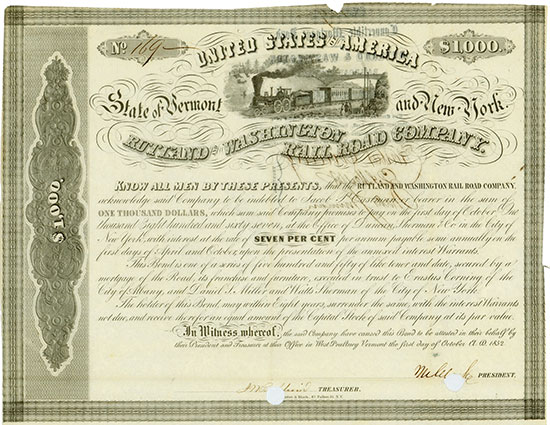 No 169
$1,000.
UNITED STATES OF AMERICA
State of Vermont and New-York.
RUTLAND AND WASHINGTON
RAIL ROAD COMPANY.
$1,000.
KNOW ALL MEN BY THESE PRESENTS, that the RUTLAND AND WASHINGTON RAIL ROAD COMPANY,
acknowledge said Company to be indebted to Jacob bearer in the sum of
ONE THOUSAND DOLLARS, which sum said Company promises to pay on the first day of October One
Thousand Eight hundred and sixty seven, at the Office of Duncan Sherman & Co in the City of
New York, with interest at the rate of SEVEN PER CENT per annum payable semi annually on the
first days of April and October, upon the presentation of the annexed interest Warrants.
This Bond is one of a series of five hundred and fifty of the same amount and date, secured by a
mortgage of the Road, its franchise and furniture, executed in trust to Erastus Corning of the
City of Albany, and Daniel S. Miller and Watts Sherman of the City of New York.
The holder of this Bond, may within Eight years, surrender the same, with the interest Warrants
not due, and receive therefor an equal amount of the Capital Stock of said Company at its par value.
In Witness whereof, the said Company have caused this Bond to be attested in their behalf by
their President and Treasurer at their Office in West Poultney Vermont the first day of October A.D. 1852.
PRESIDENT.
TREASURER.